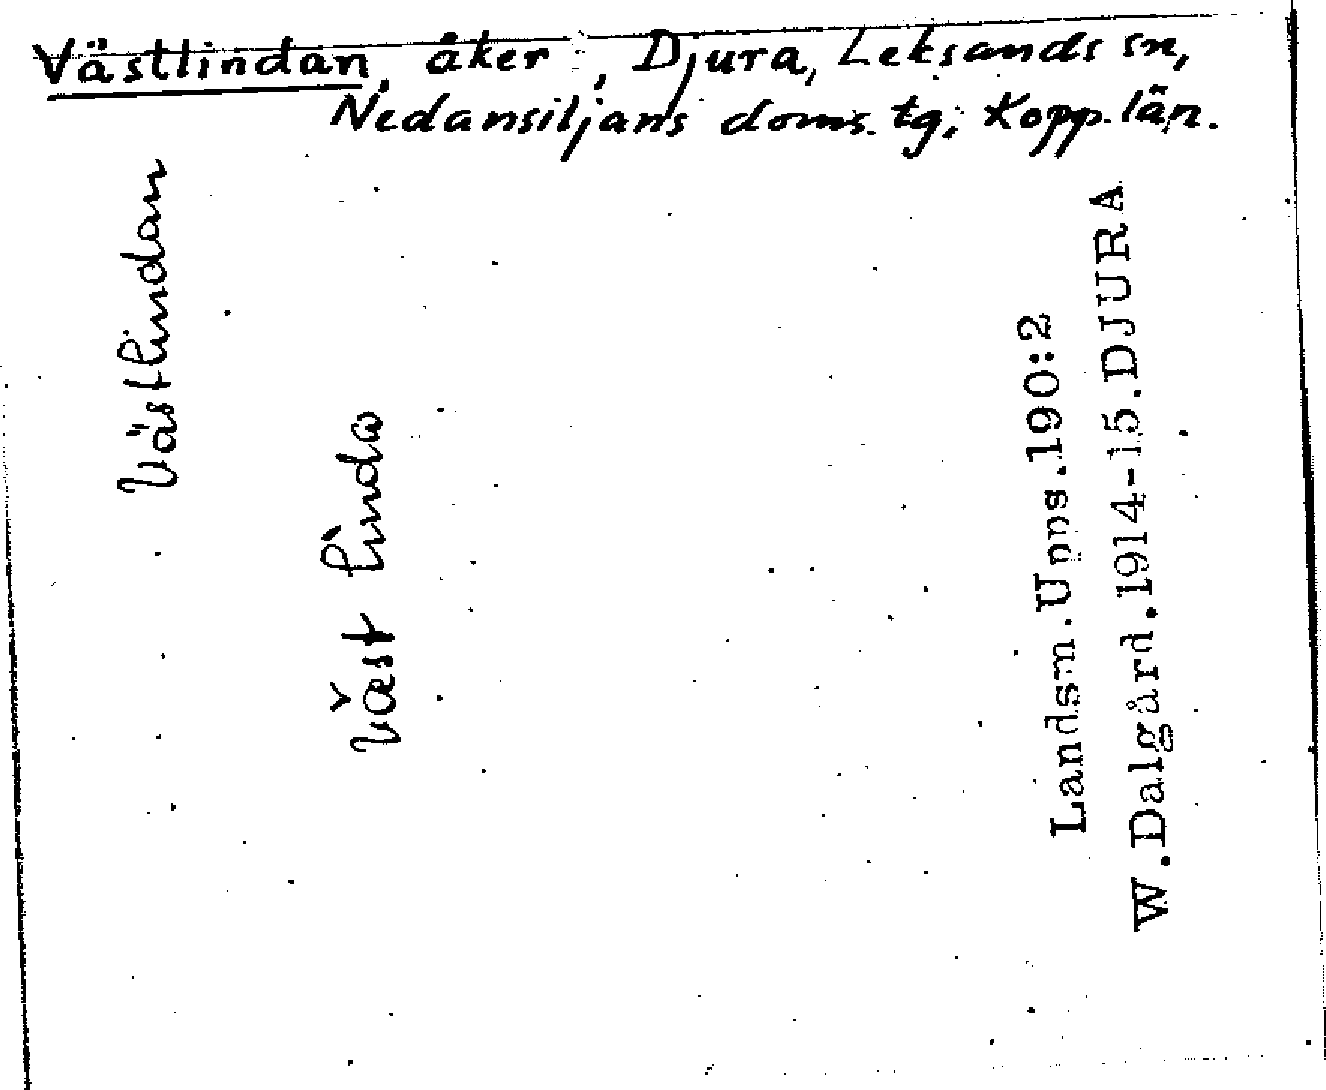 Västlindan, åker, Djura, Leksands sn,
Nedansiljans doms. tg; Kopp. län.
Västlindan
Väst linda
Landsm.Upps.190:2
W.Dalgård.1914-15.DJURA